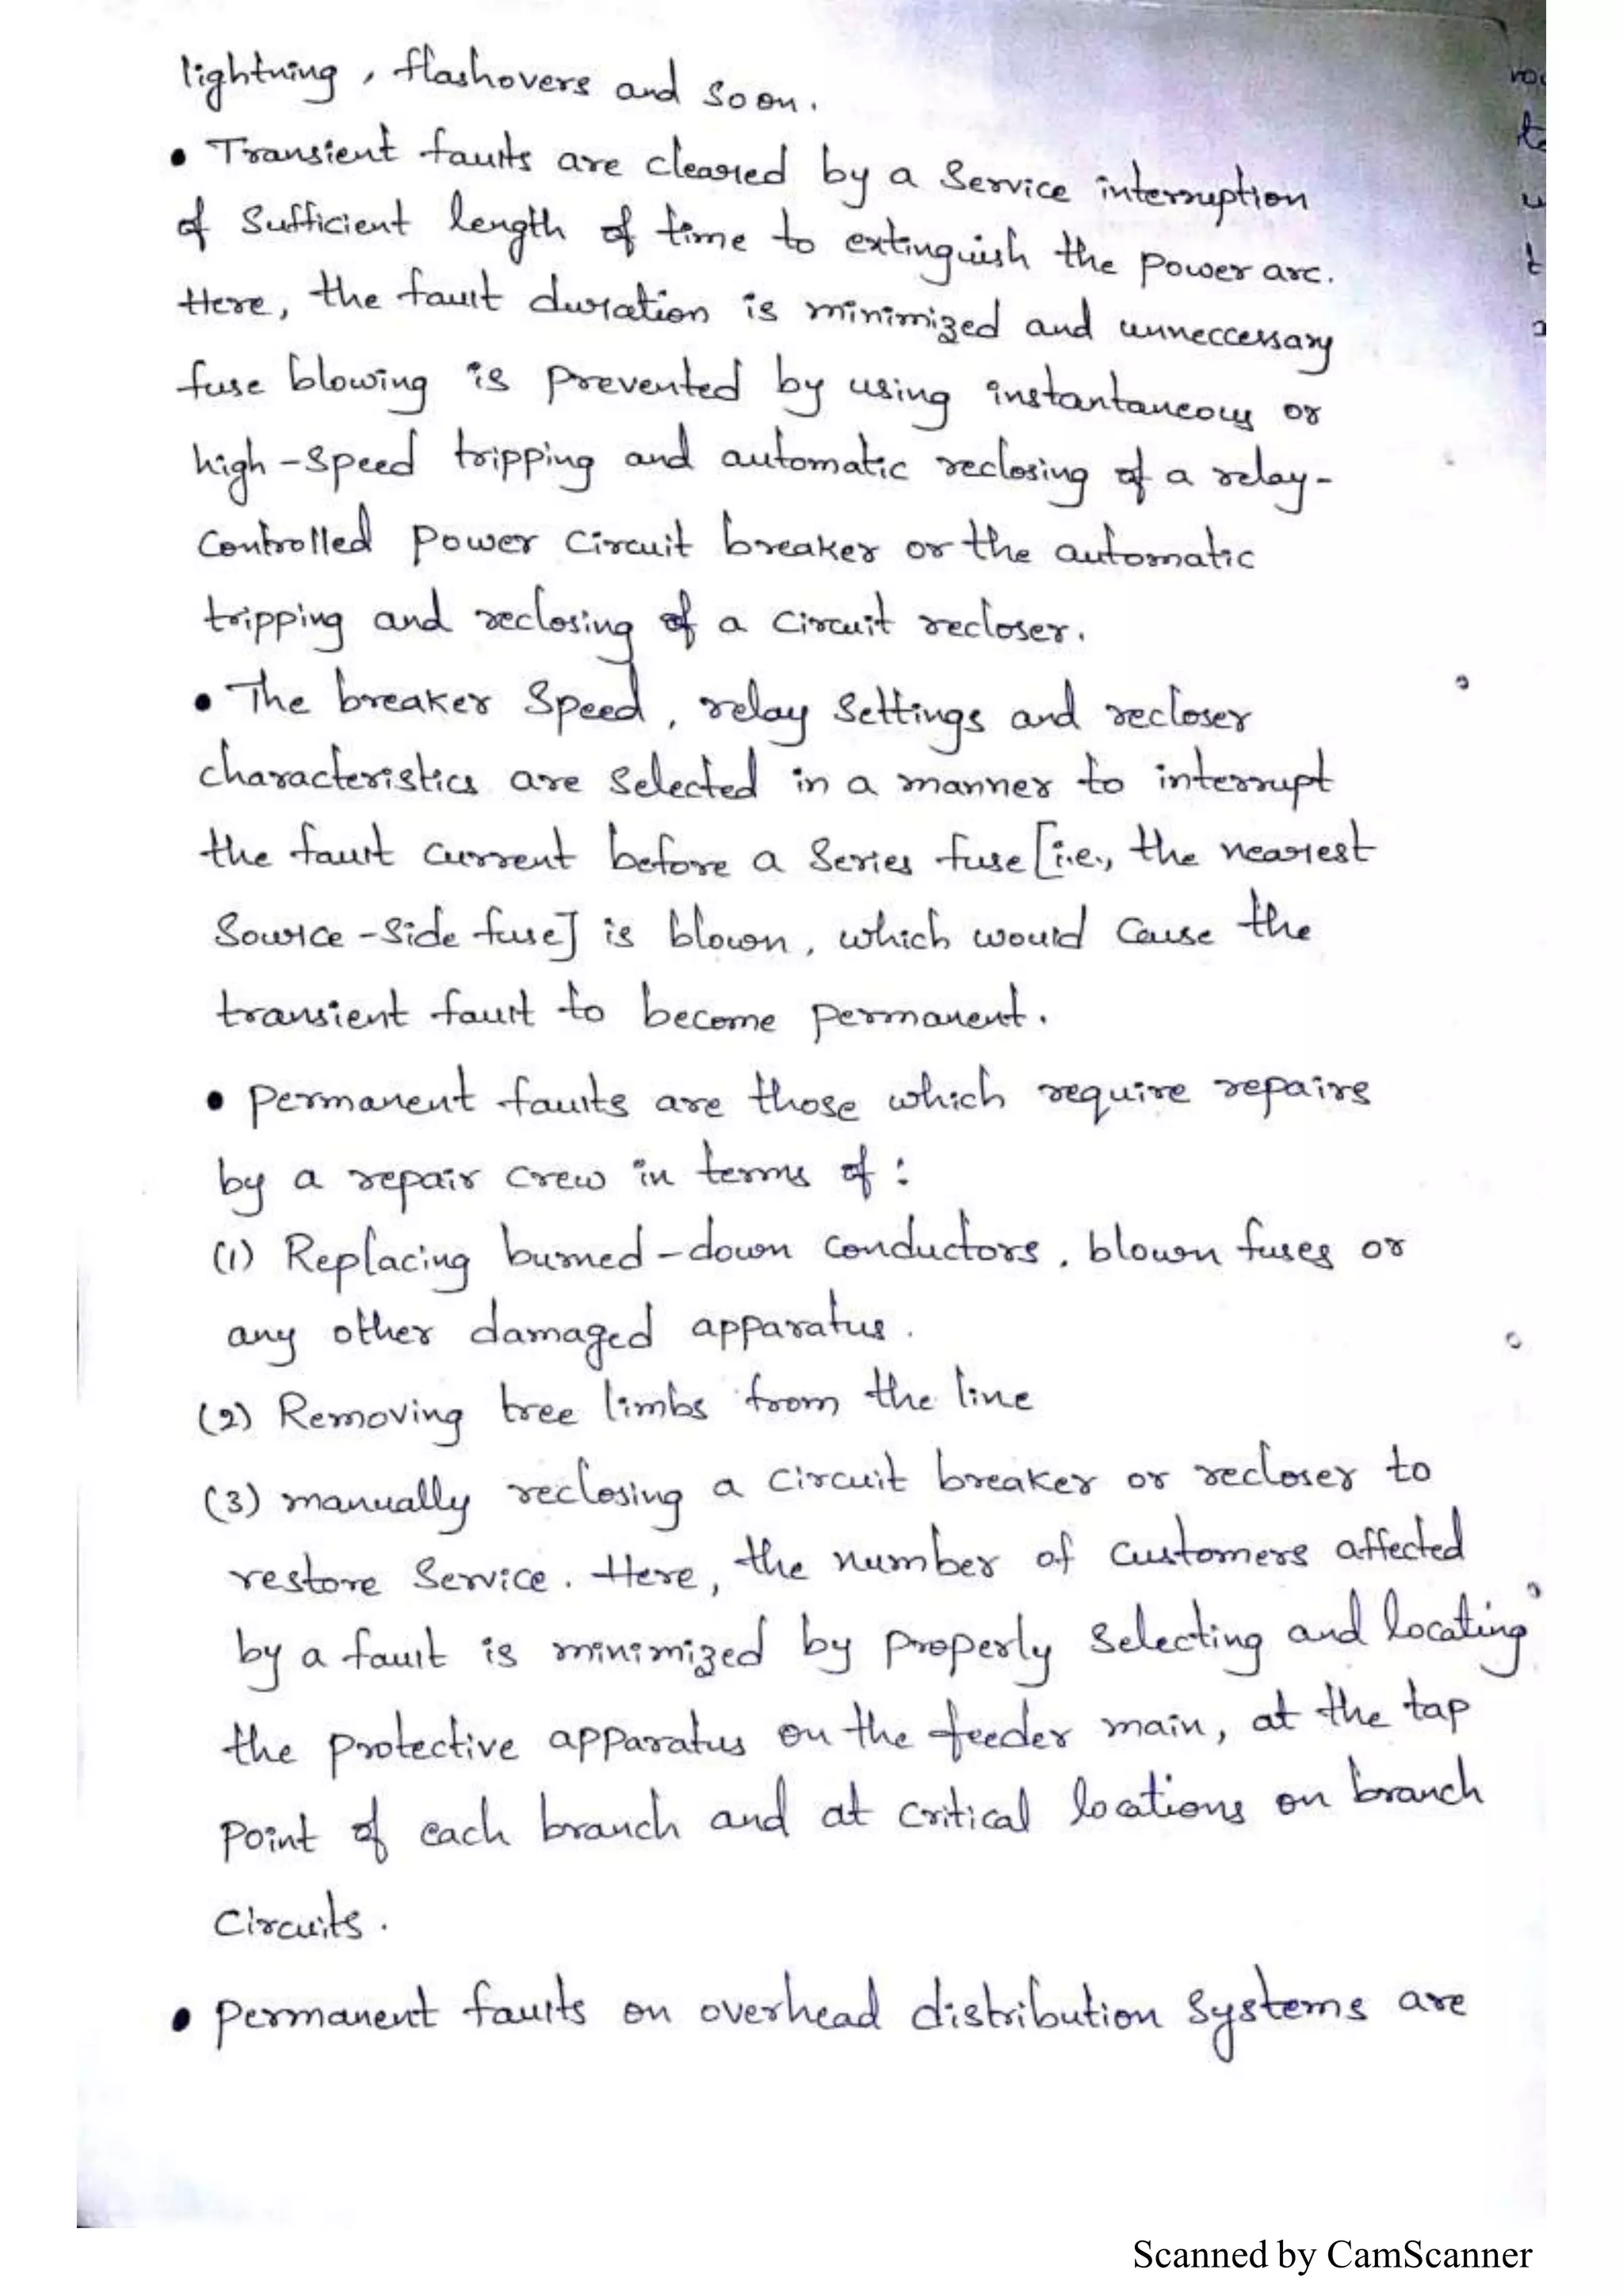 lightning, flashovers and soon.
• Transient faults are cleared by a Service interruption
of Sufficient length of time to extinguish the power arc.
Here, the fault duration is minimized and unneccessary
fuse blowing is prevented by using instantaneous or
high-speed tripping and automatic reclosing of a relay-
Controlled power circuit breaker or the automatic
tripping and reclosing of a circuit recloser.
• The breaker Speed, relay settings and recloser
characteristics are selected in a manner to interrupt
the fault current before a Series fuse [i.e., the nearest
Source-side fuse] is blown, which would cause the
transient fault to become permanent.
• permanent faults are those which require repairs
by a repair crew in terms of :
(1) Replacing burned-down conductors, blown fuses or
any other damaged apparatus.
(2) Removing tree limbs from the line
(3) manually reclosing a circuit breaker or recloser to
restore Service. Here, the number of customers affected
by a fault is minimized by properly selecting and locating
the protective apparatus on the feeder main, at the tap
point of each branch and at critical locations on branch
circuits.
• permanent faults on overhead distribution systems are
Scanned by CamScanner